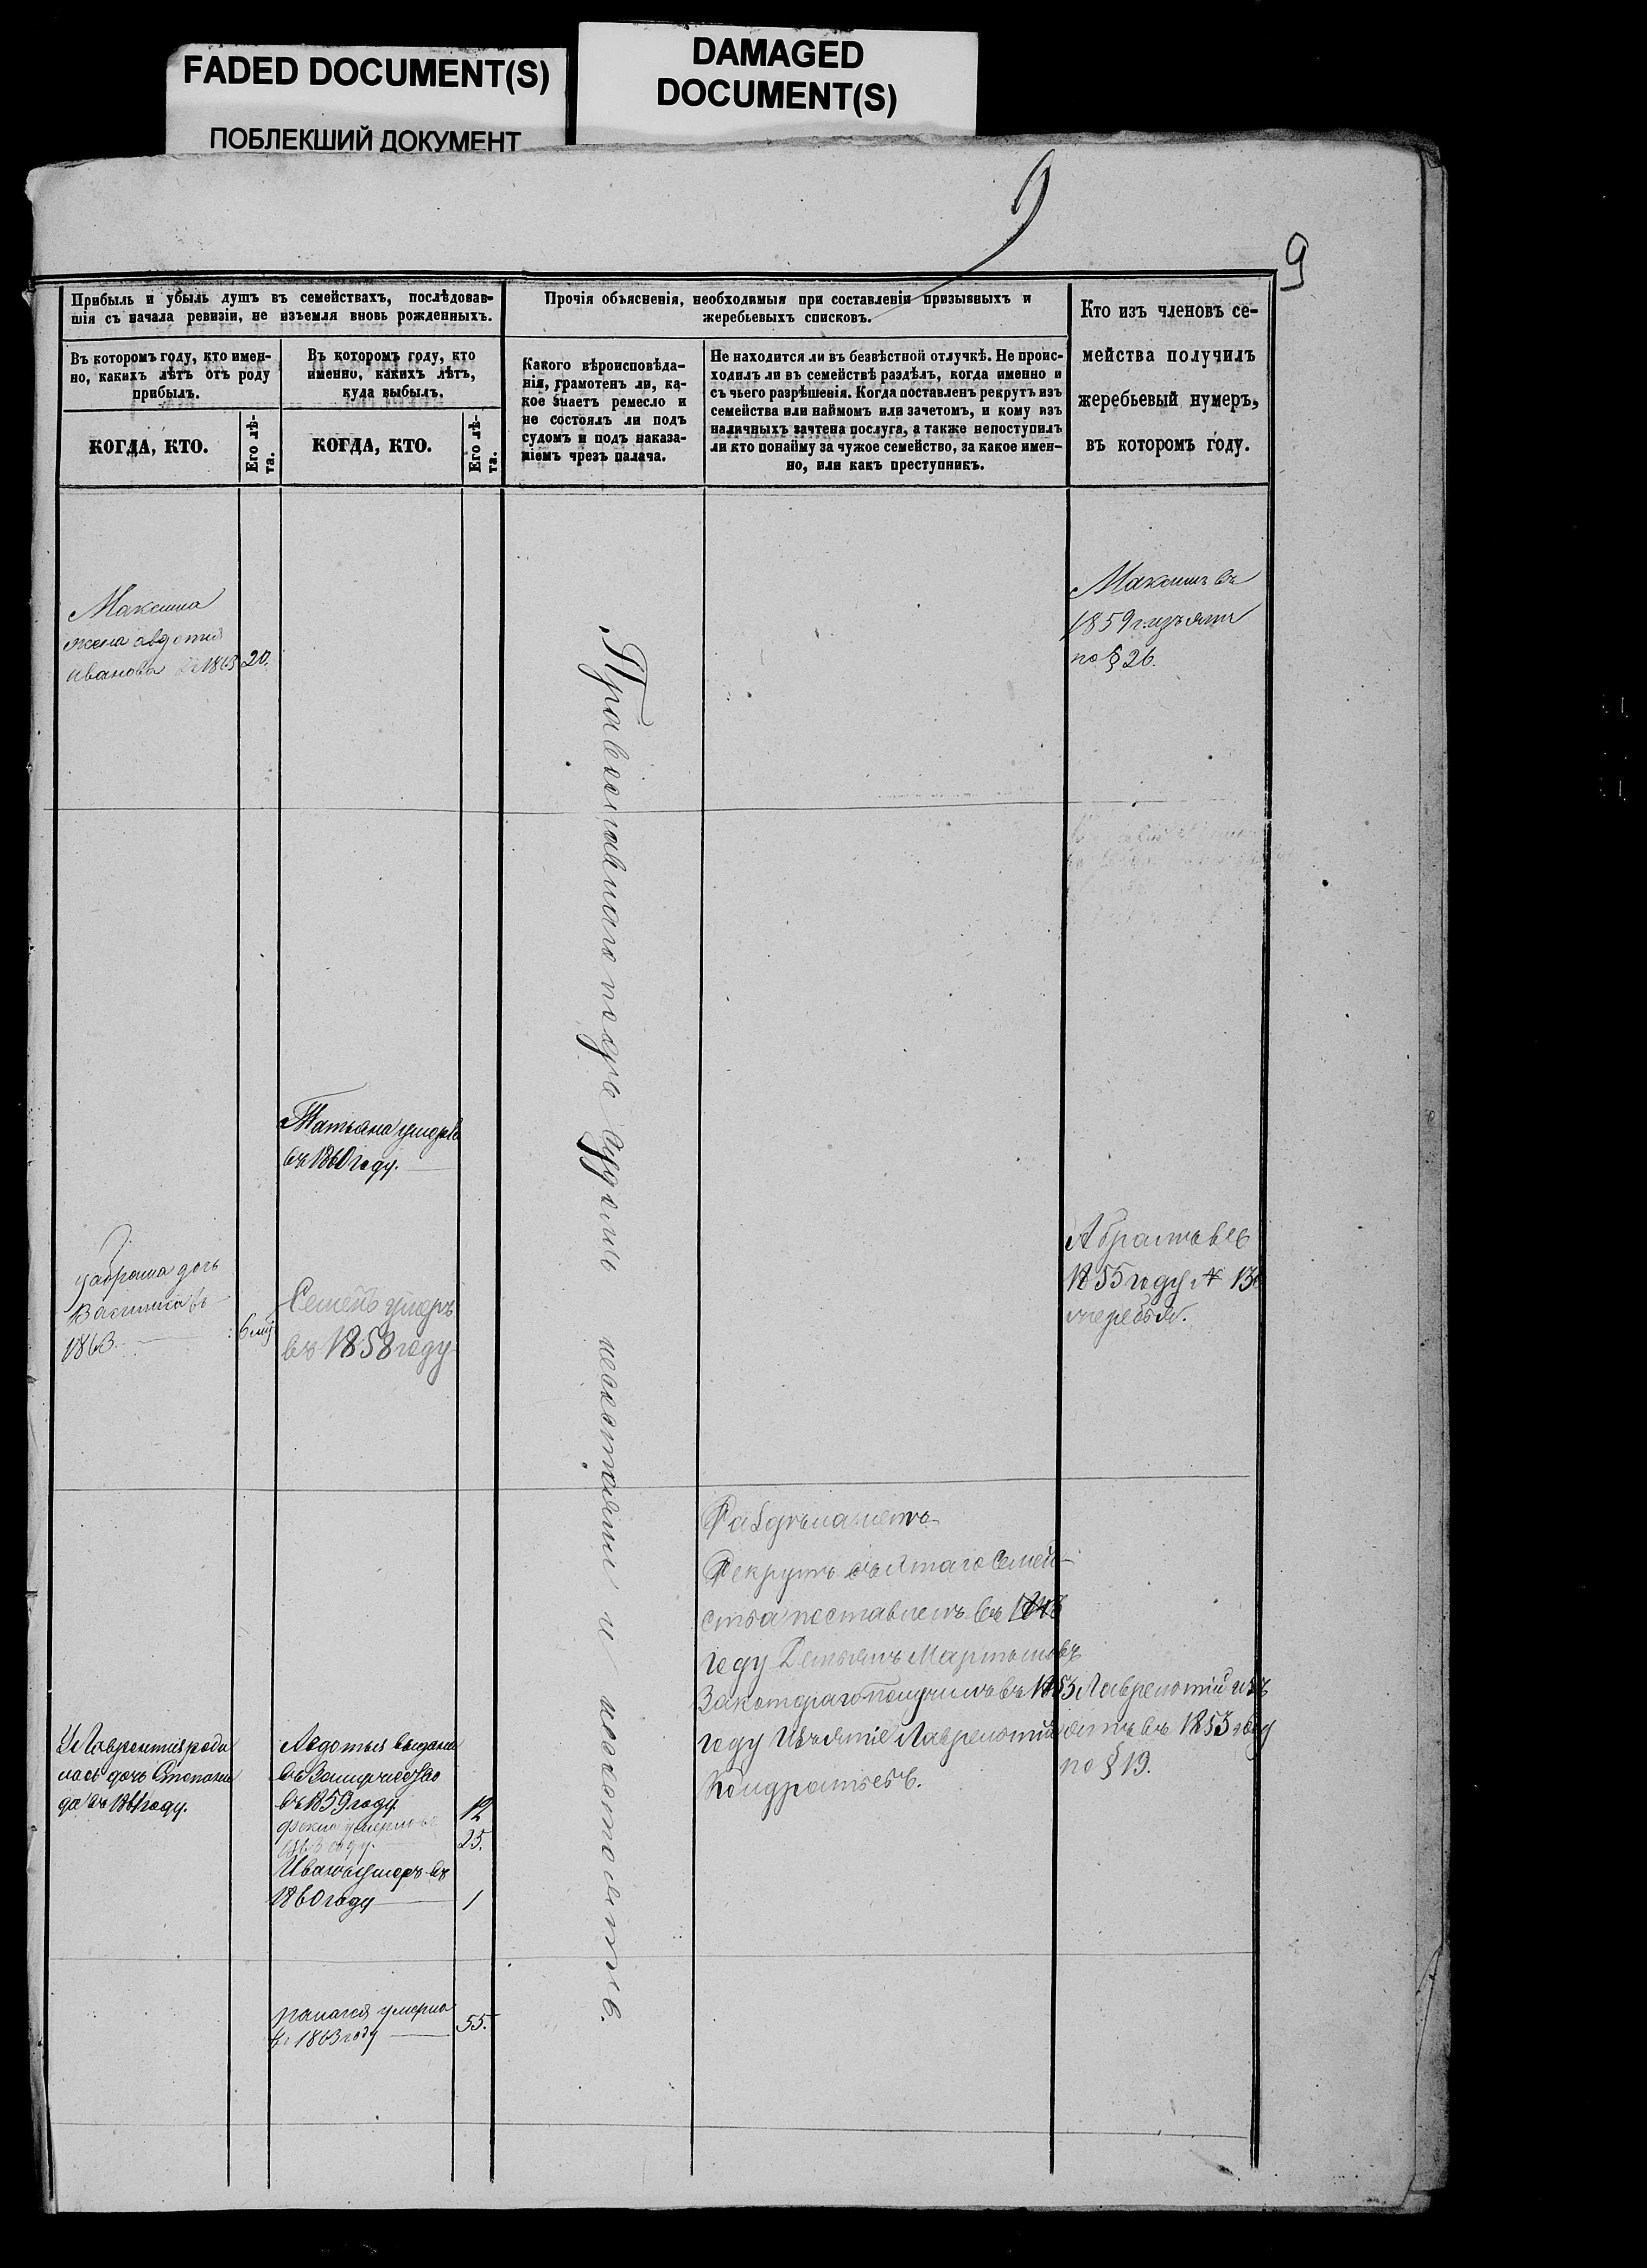 FADED DOCUMENT(S)
ПОБЛЕКШИЙ ДОКУМЕНТ
DAMAGED
DOCUMENT(S)
9
9
Прибыль и убыль душъ въ семействахъ, послѣдовав-
шія съ начала ревизіи, не изъемля вновь рожденныхъ.
Въ которомъ году, кто имен-
но, какихъ лѣтъ отъ роду
прибылъ.
КОГДА, КТО.
Его лѣ-
та.
Въ которомъ году, кто
именно, какихъ лѣтъ,
куда выбылъ.
КОГДА, КТО.
Его лѣ-
та.
Прочія объясненія, необходимыя при составленіи призывныхъ и
жеребьевыхъ списковъ.
Какого вѣроисповѣда-
нія, грамотенъ ли, ка-
кое знаетъ ремесло и
не состоялъ ли подъ
судомъ и подъ наказа-
ніемъ чрезъ палача.
Не находится ли въ безвѣстной отлучкѣ. Не проис-
ходилъ ли въ семействѣ раздѣлъ, когда именно и
съ чьего разрѣшенія. Когда поставленъ рекрутъ изъ
семейства или наймомъ или зачетомъ, и кому изъ
наличныхъ зачтена послуга, а также непоступилъ
ли кто понайму за чужое семейство, за какое имен-
но, или какъ преступникъ.
Кто изъ членовъ се-
мейства получилъ
жеребьевый нумеръ,
въ которомъ году.
Максима
жена авдотия
иванова 1863 20.
Максимъ въ
1859 г. изъятъ
по § 26.
Православнаго подъ судомъ несостояли и несостоятъ.
Татьяна умерла
въ 1860 году.
дочь
1863.
Семенъ умеръ
въ 1858 году
1855 году № 13
жеребья.
Раздѣла нетъ
Рекрутъ съ этаго Семей-
ства поставленъ въ
году Демьянъ Мартыновъ
За котораго получилъ въ 1853
году Изъятіе Лаврентий
Кондратьевъ.
Лаврентий изъ
ятъ въ 1853 году
по § 19.
У Лаврентия роди
лась дочь Степани
да въ 1861 году.
Авдотья выдана
въ Замужество
въ 1859 году 12
умерла
году. 25.
Иванъ умеръ въ
1860 году 1
умерла
въ 1863 году 55.